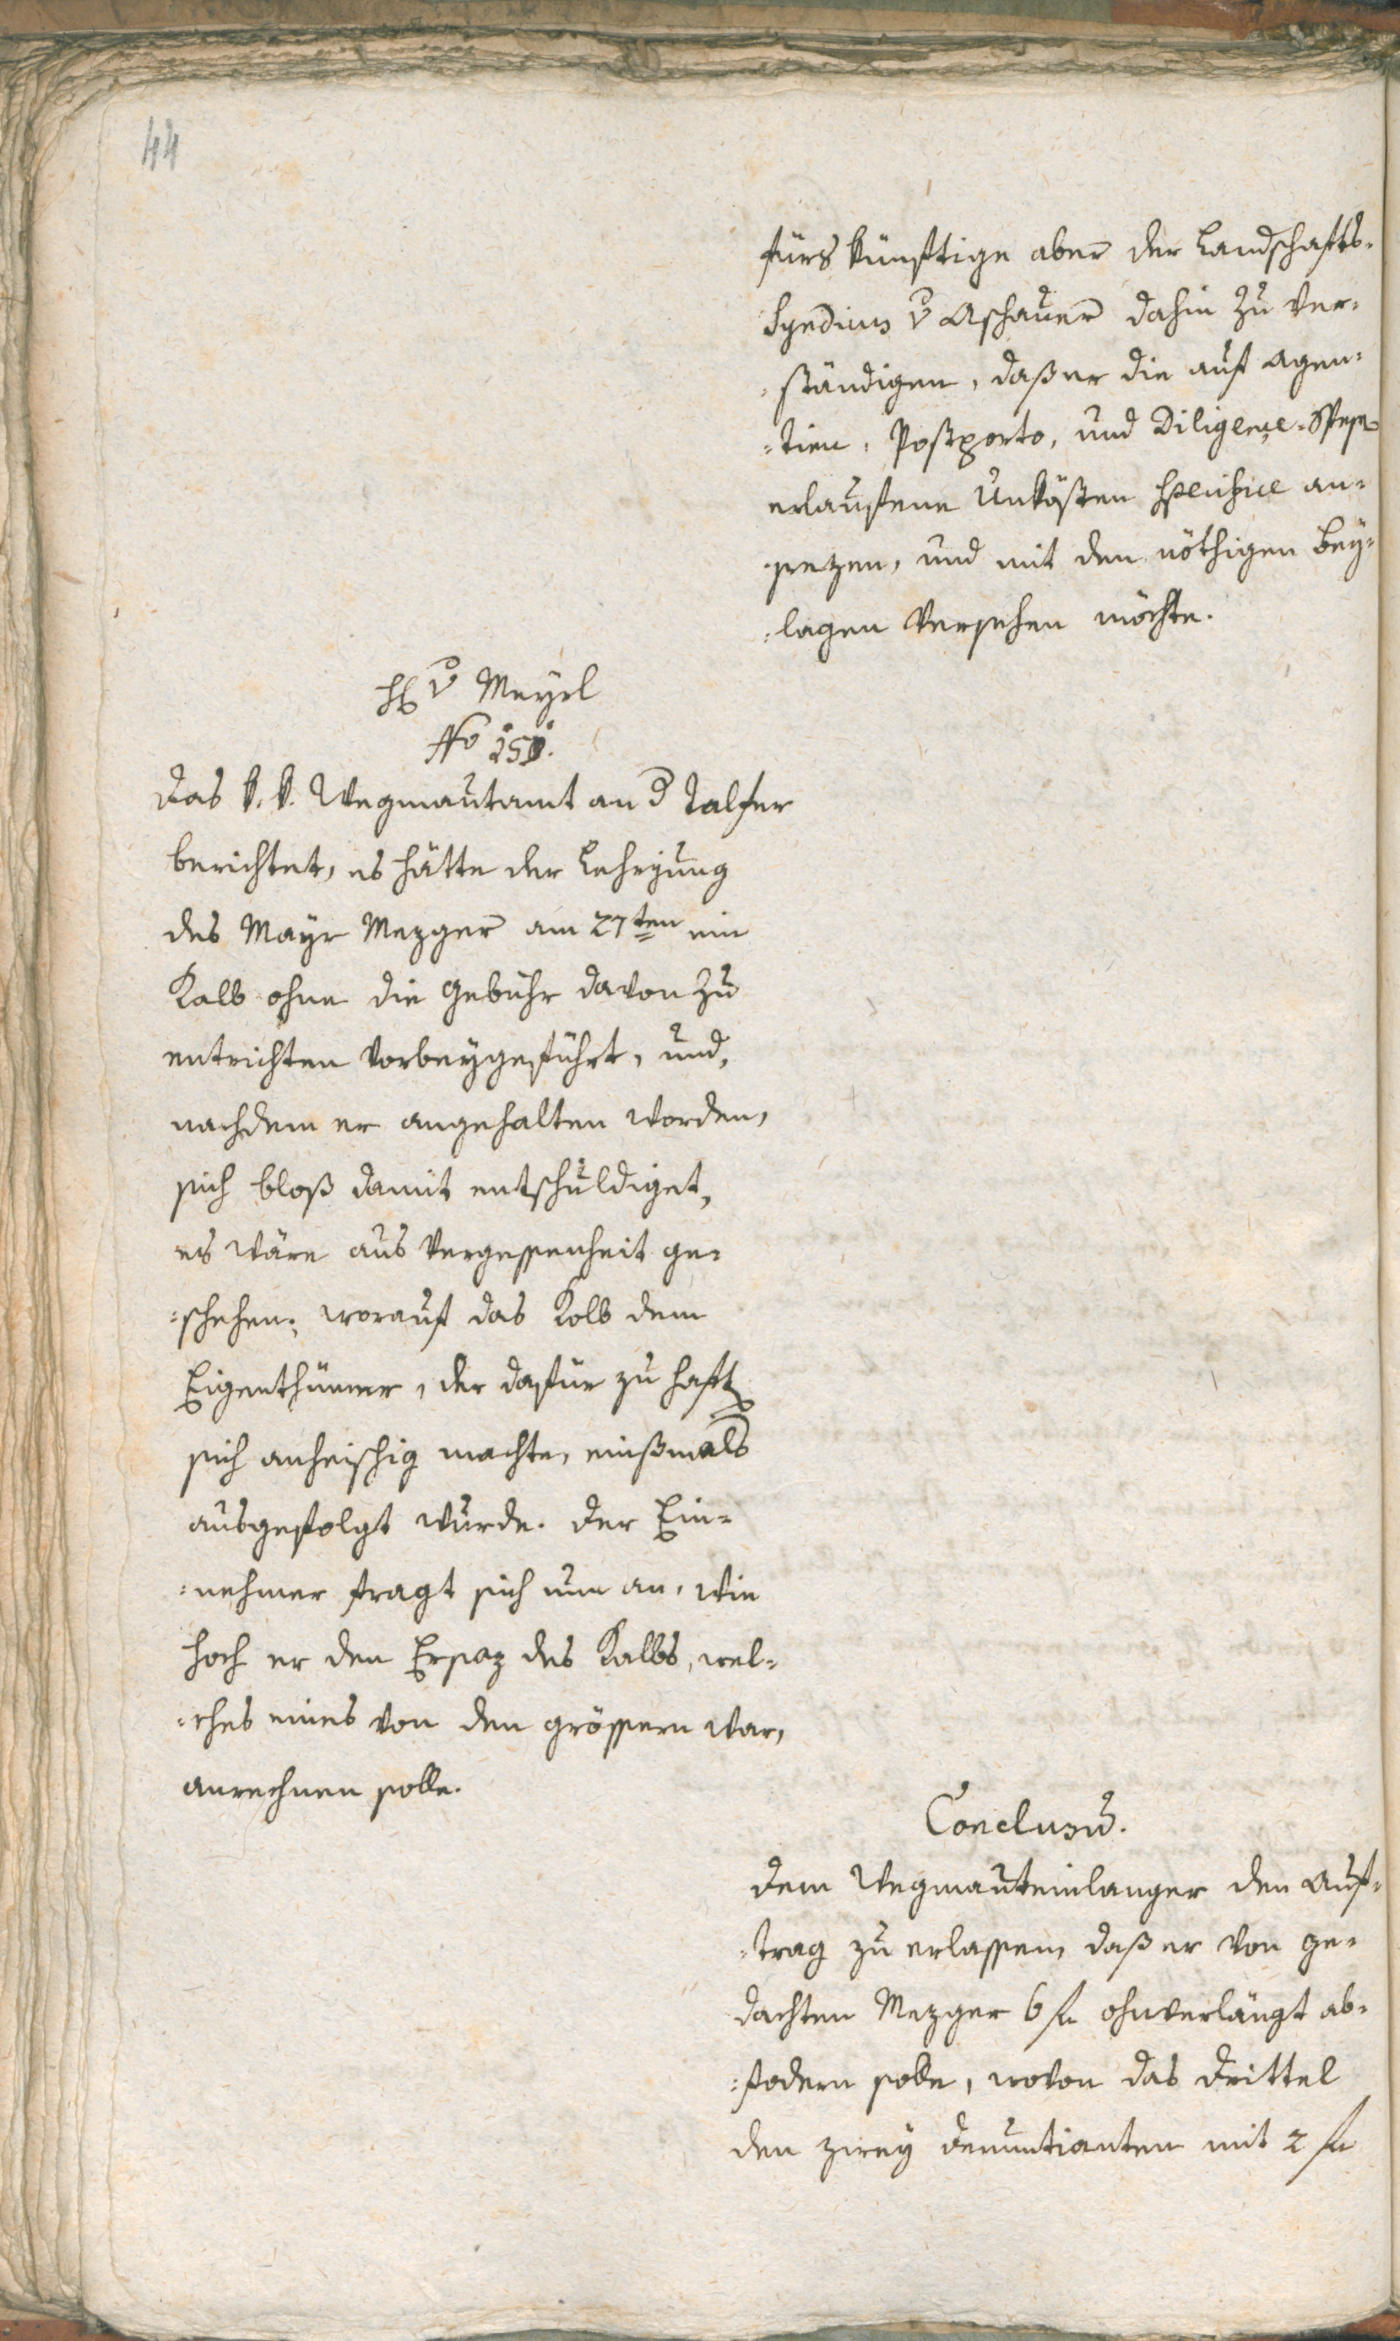 44
fürs künftige aber der Landschafts-
Syndicus v Aschauer dahin zu ver-
ständigen, daß er die auf Agen-
=tien, Postporto, und Diligençe-Spesen
erlaufene Unkösten specifice an-
sezen, und mit den nöthigen Bey-
=lagen versehen möchte.
H v Mayrl
No 251.
Das k. k. Wegmautamt an d Talfer
berichtet, es hätte der Lehrjung
des Mayr Mezger am 27ten ein
Kalb ohne die Gebühr davon zu
entrichten vorbeygeführt, und,
nachdem er angehalten worden,
sich bloß damit entschuldiget,
es wäre aus Vergessenheit ge-
=schehen; worauf das Kalb dem
Eigenthümer, der dafür zu haften
sich anheischig machte, einßmals
ausgefolgt wurde. Der Ein-
=nehmer fragt sich nun an, wie
hoch er den Ersaz des Kalbs, wel-
=ches eines von den grössern war,
anrechnen solle.
Conclusum.
Dem Wegmauteinlanger den Auf-
=trag zu erlassen, daß er von ge-
dachten Mezger 6 fl ohnverlängt ab-
=fodern solle, wovon das Drittel
den zwey Denuntianten mit 2 fl